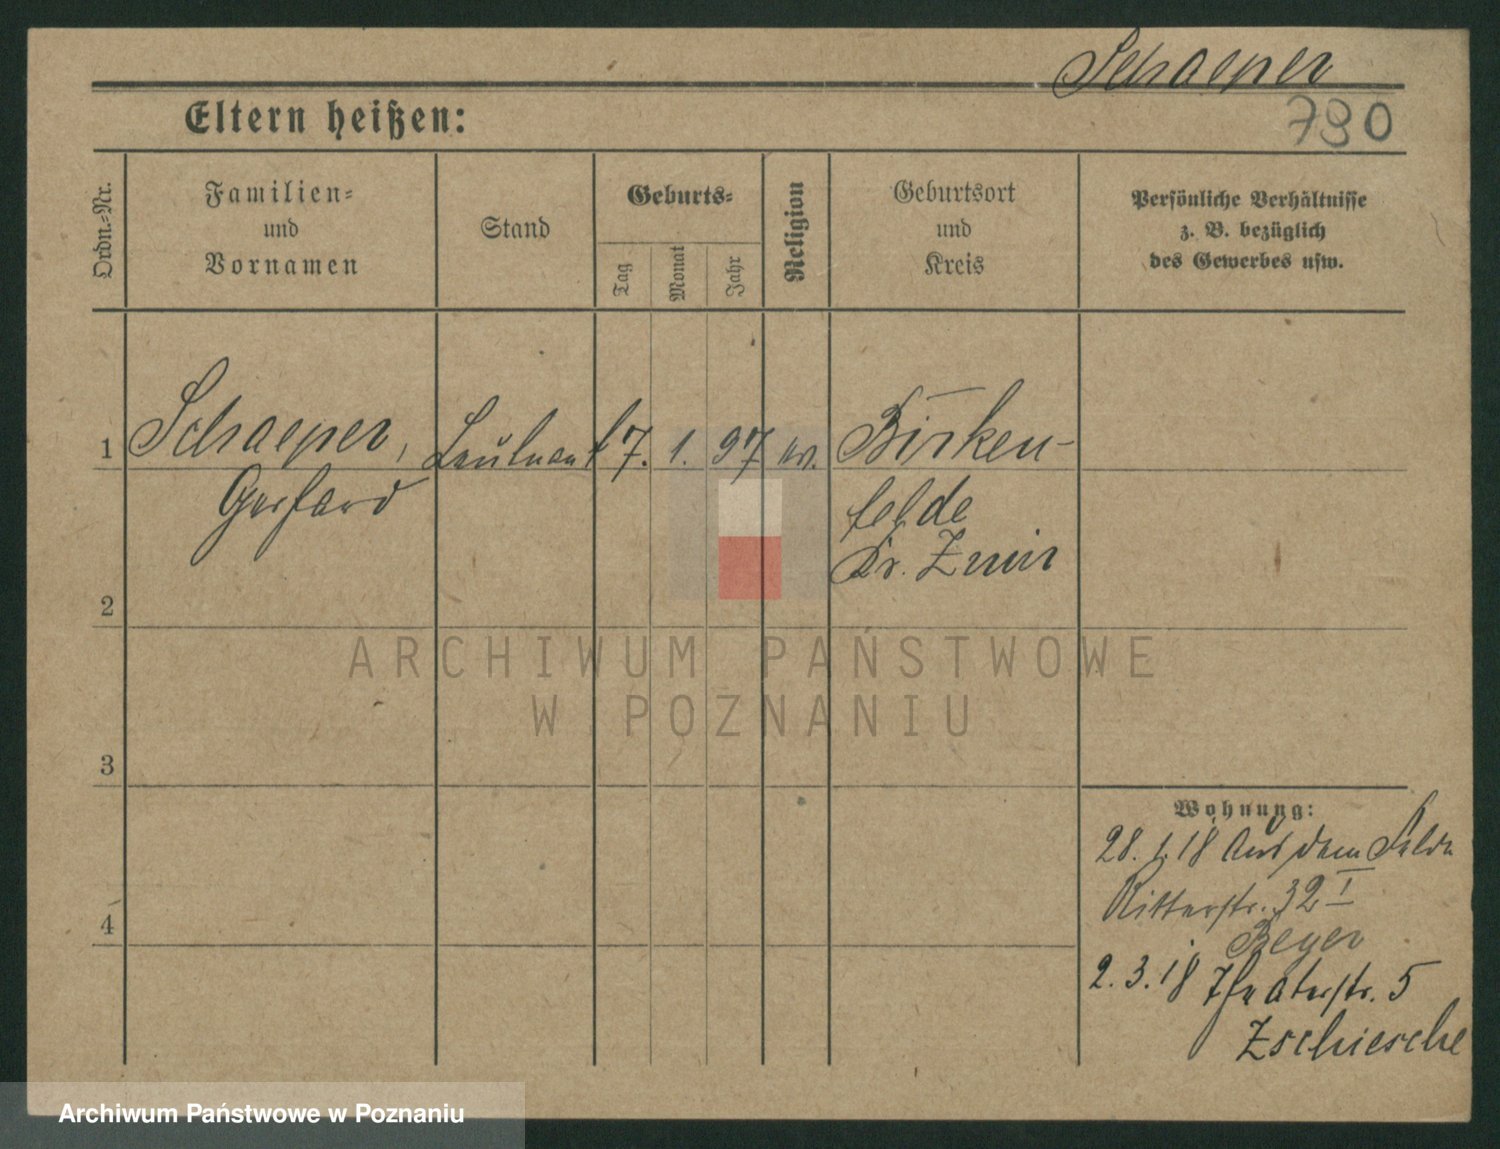 Schaeper
790
Eltern heißen:
Ordn.-Nr.
Familien-
und
Vornamen
Stand
Geburts-
Tag
Monat
Jahr
Religion
Geburtsort
und
Kreis
Persönliche Verhältnisse
z. B. bezüglich
des Gewerbes usw.
1 Schaeper, Leutnant 7. 1. 97 ev. Birken-
Gerhard felde
Kr. Znin
2
3
4
Wohnung:
28. 1. 18 Aus dem Felde
Ritterstr. 32 I
Beyer
2. 3. 18 Theaterstr. 5
Zschiesche
ARCHIWUM PAŃSTWOWE
W POZNANIU
Archiwum Państwowe w Poznaniu